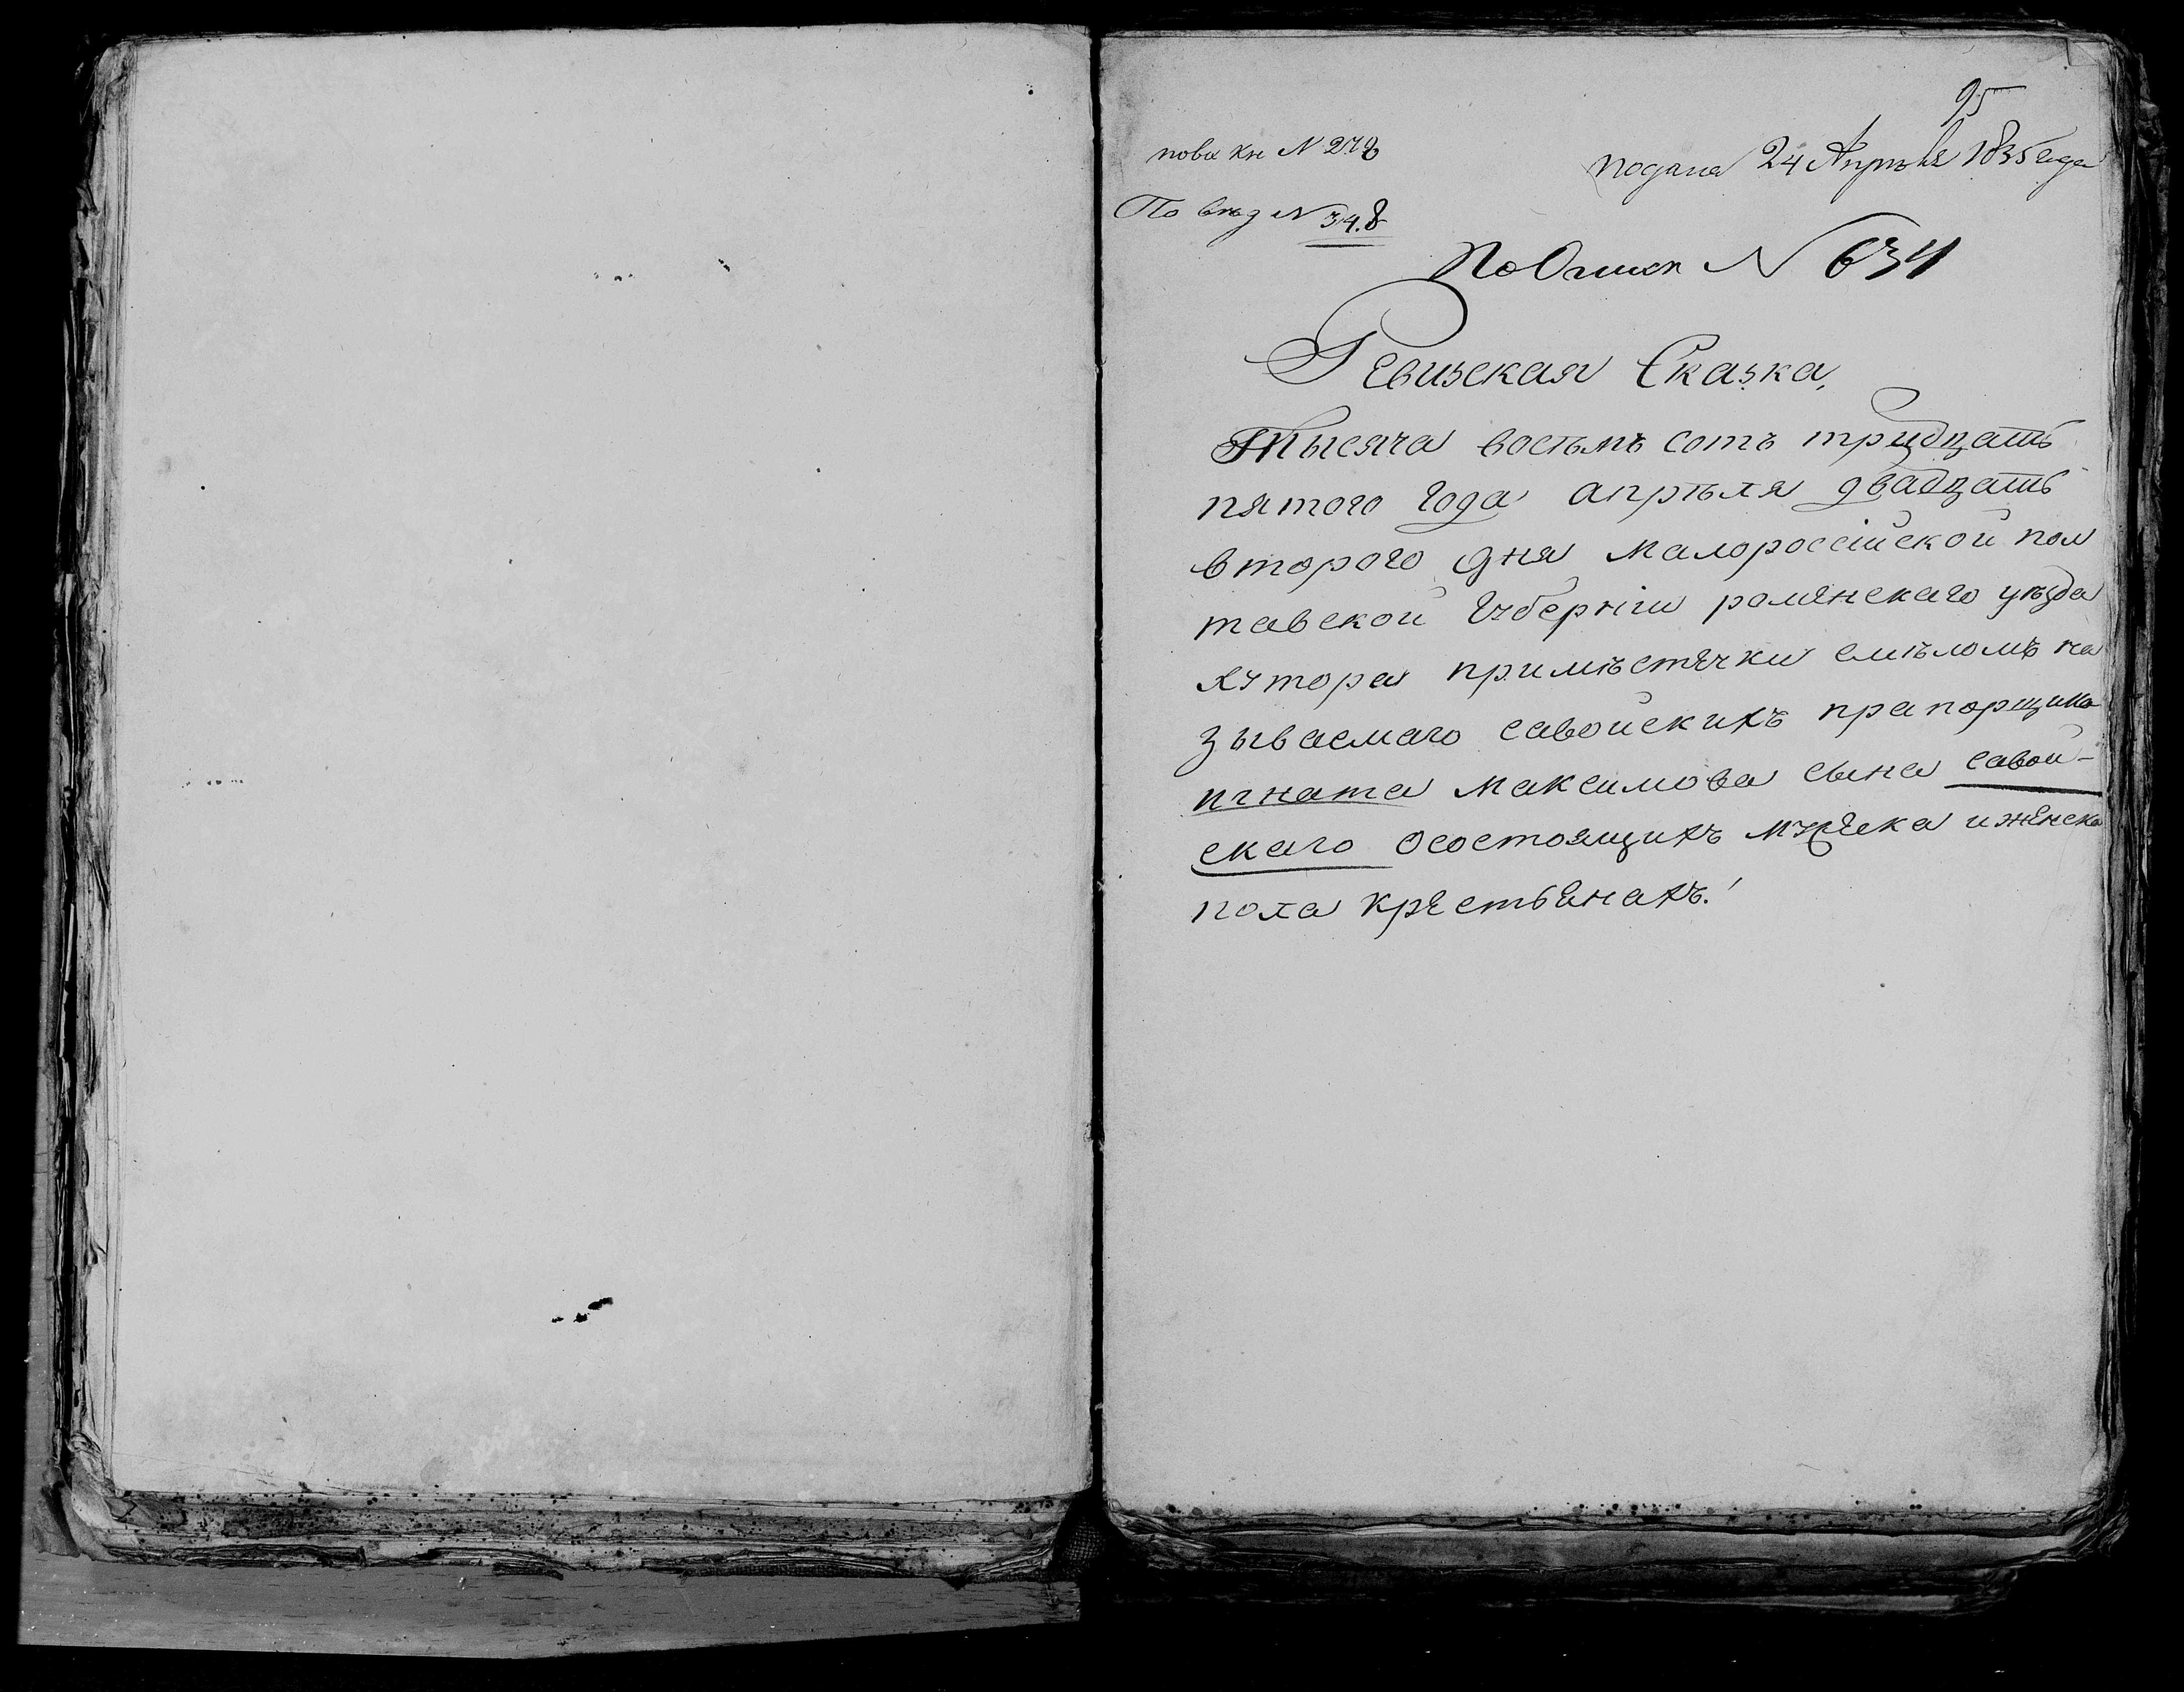 95
пова кн N 278
подана 24 Апрѣля 1835 года
По вѣд N 34.8
По Описи N 634
Ревизская Сказка,
Тысяча восѣмъ сотъ тридцать
пятого года апрѣля двадцать
второго дня малороссійской пол
тавской губерніи роменскаго уѣзда
хутора примѣстечки смѣломъ на
зываемаго савойскихъ прапорщика
игната максимова сына савой-
скаго осостоящихъ мужеска и женска
пола крестьянахъ!